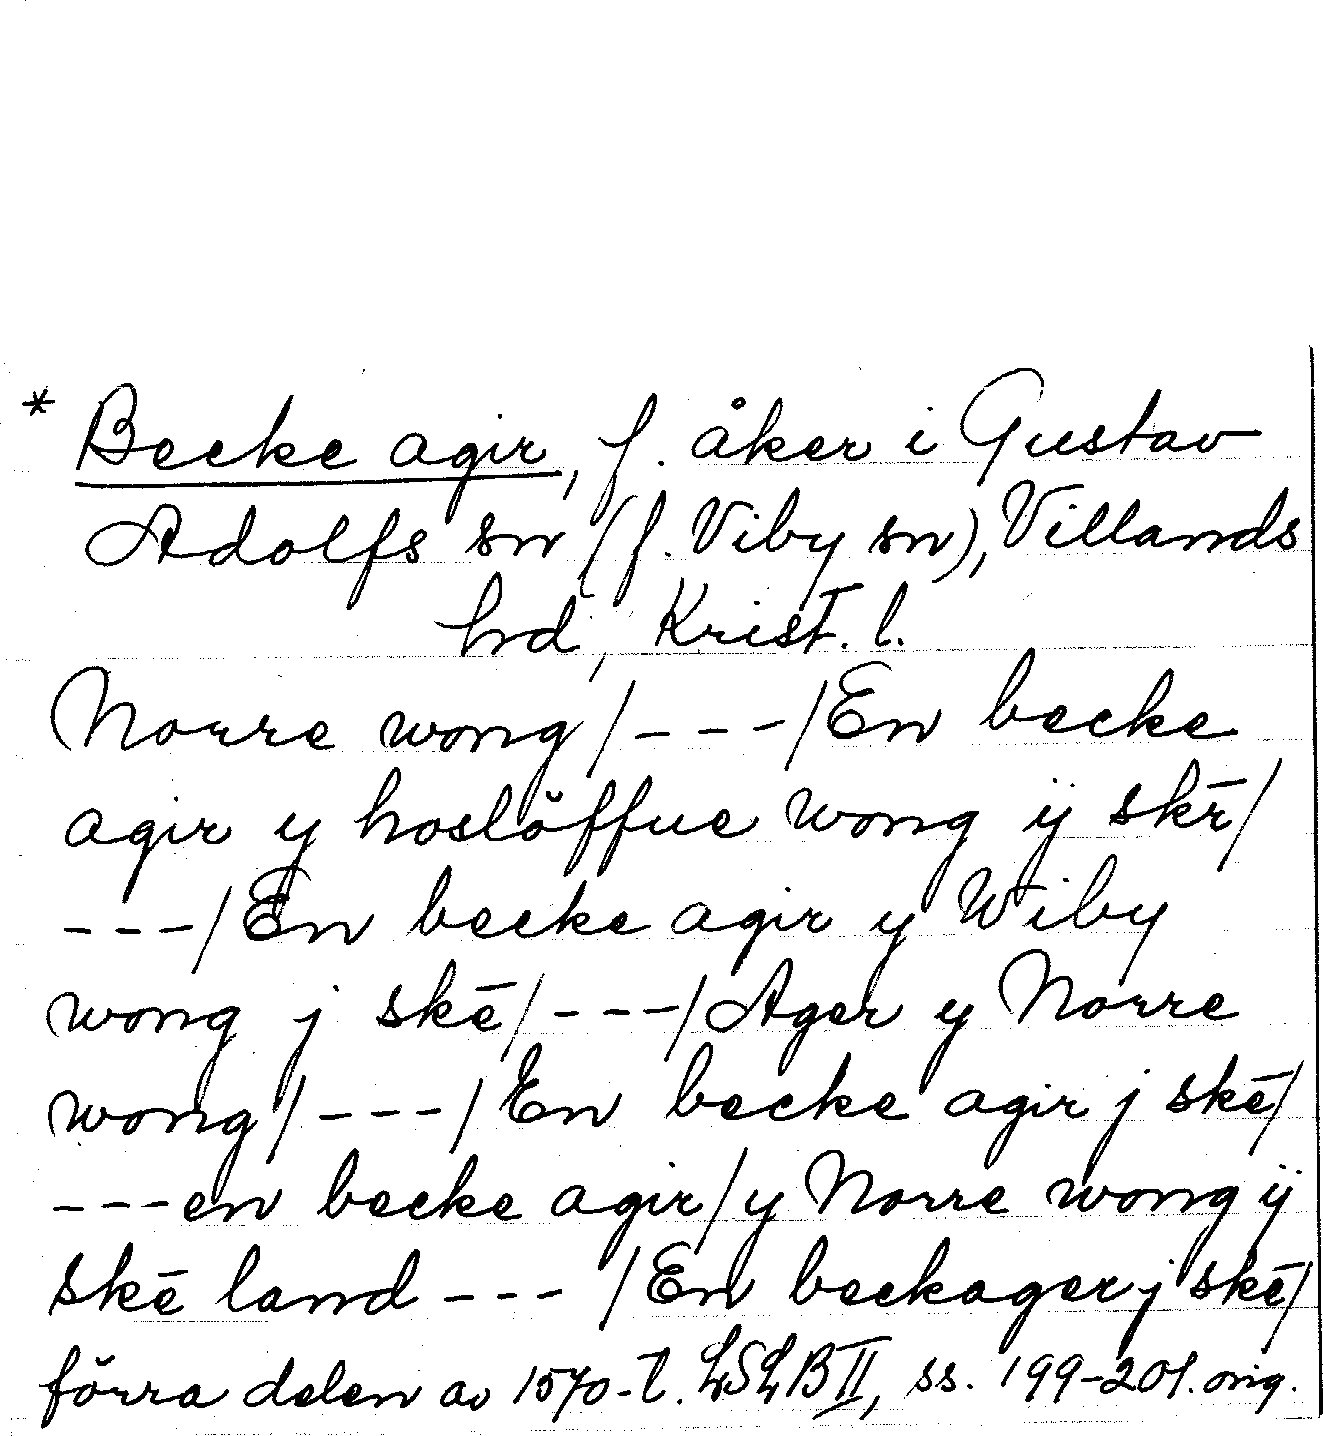 * Becke agir, f. åker i Gustav
Adolfs sn (f. Viby sn), Villands
hrd, Krist. l.
Norre wong /---/ En becke
agir y hoslöffue wong ÿ skē/
---/ En becke agir y Wiby
wong j skē/---/ Ager y Norre
wong/---/ En becke agir j skē/
---en becke agir/ y Norre wong ÿ
skē land --- / En beckager j skē/
förra delen av 1570-t. LSLB II, ss. 199-201. orig.